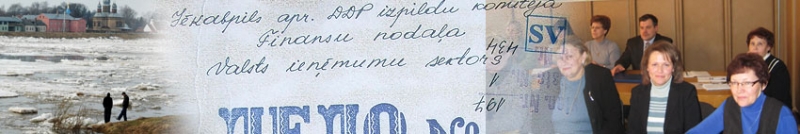 Jēkabpils apr. DDP izpildu komiteja
Finansu nodaļa
Valsts ieņēmumu sektors
SV
ДЕЛО №